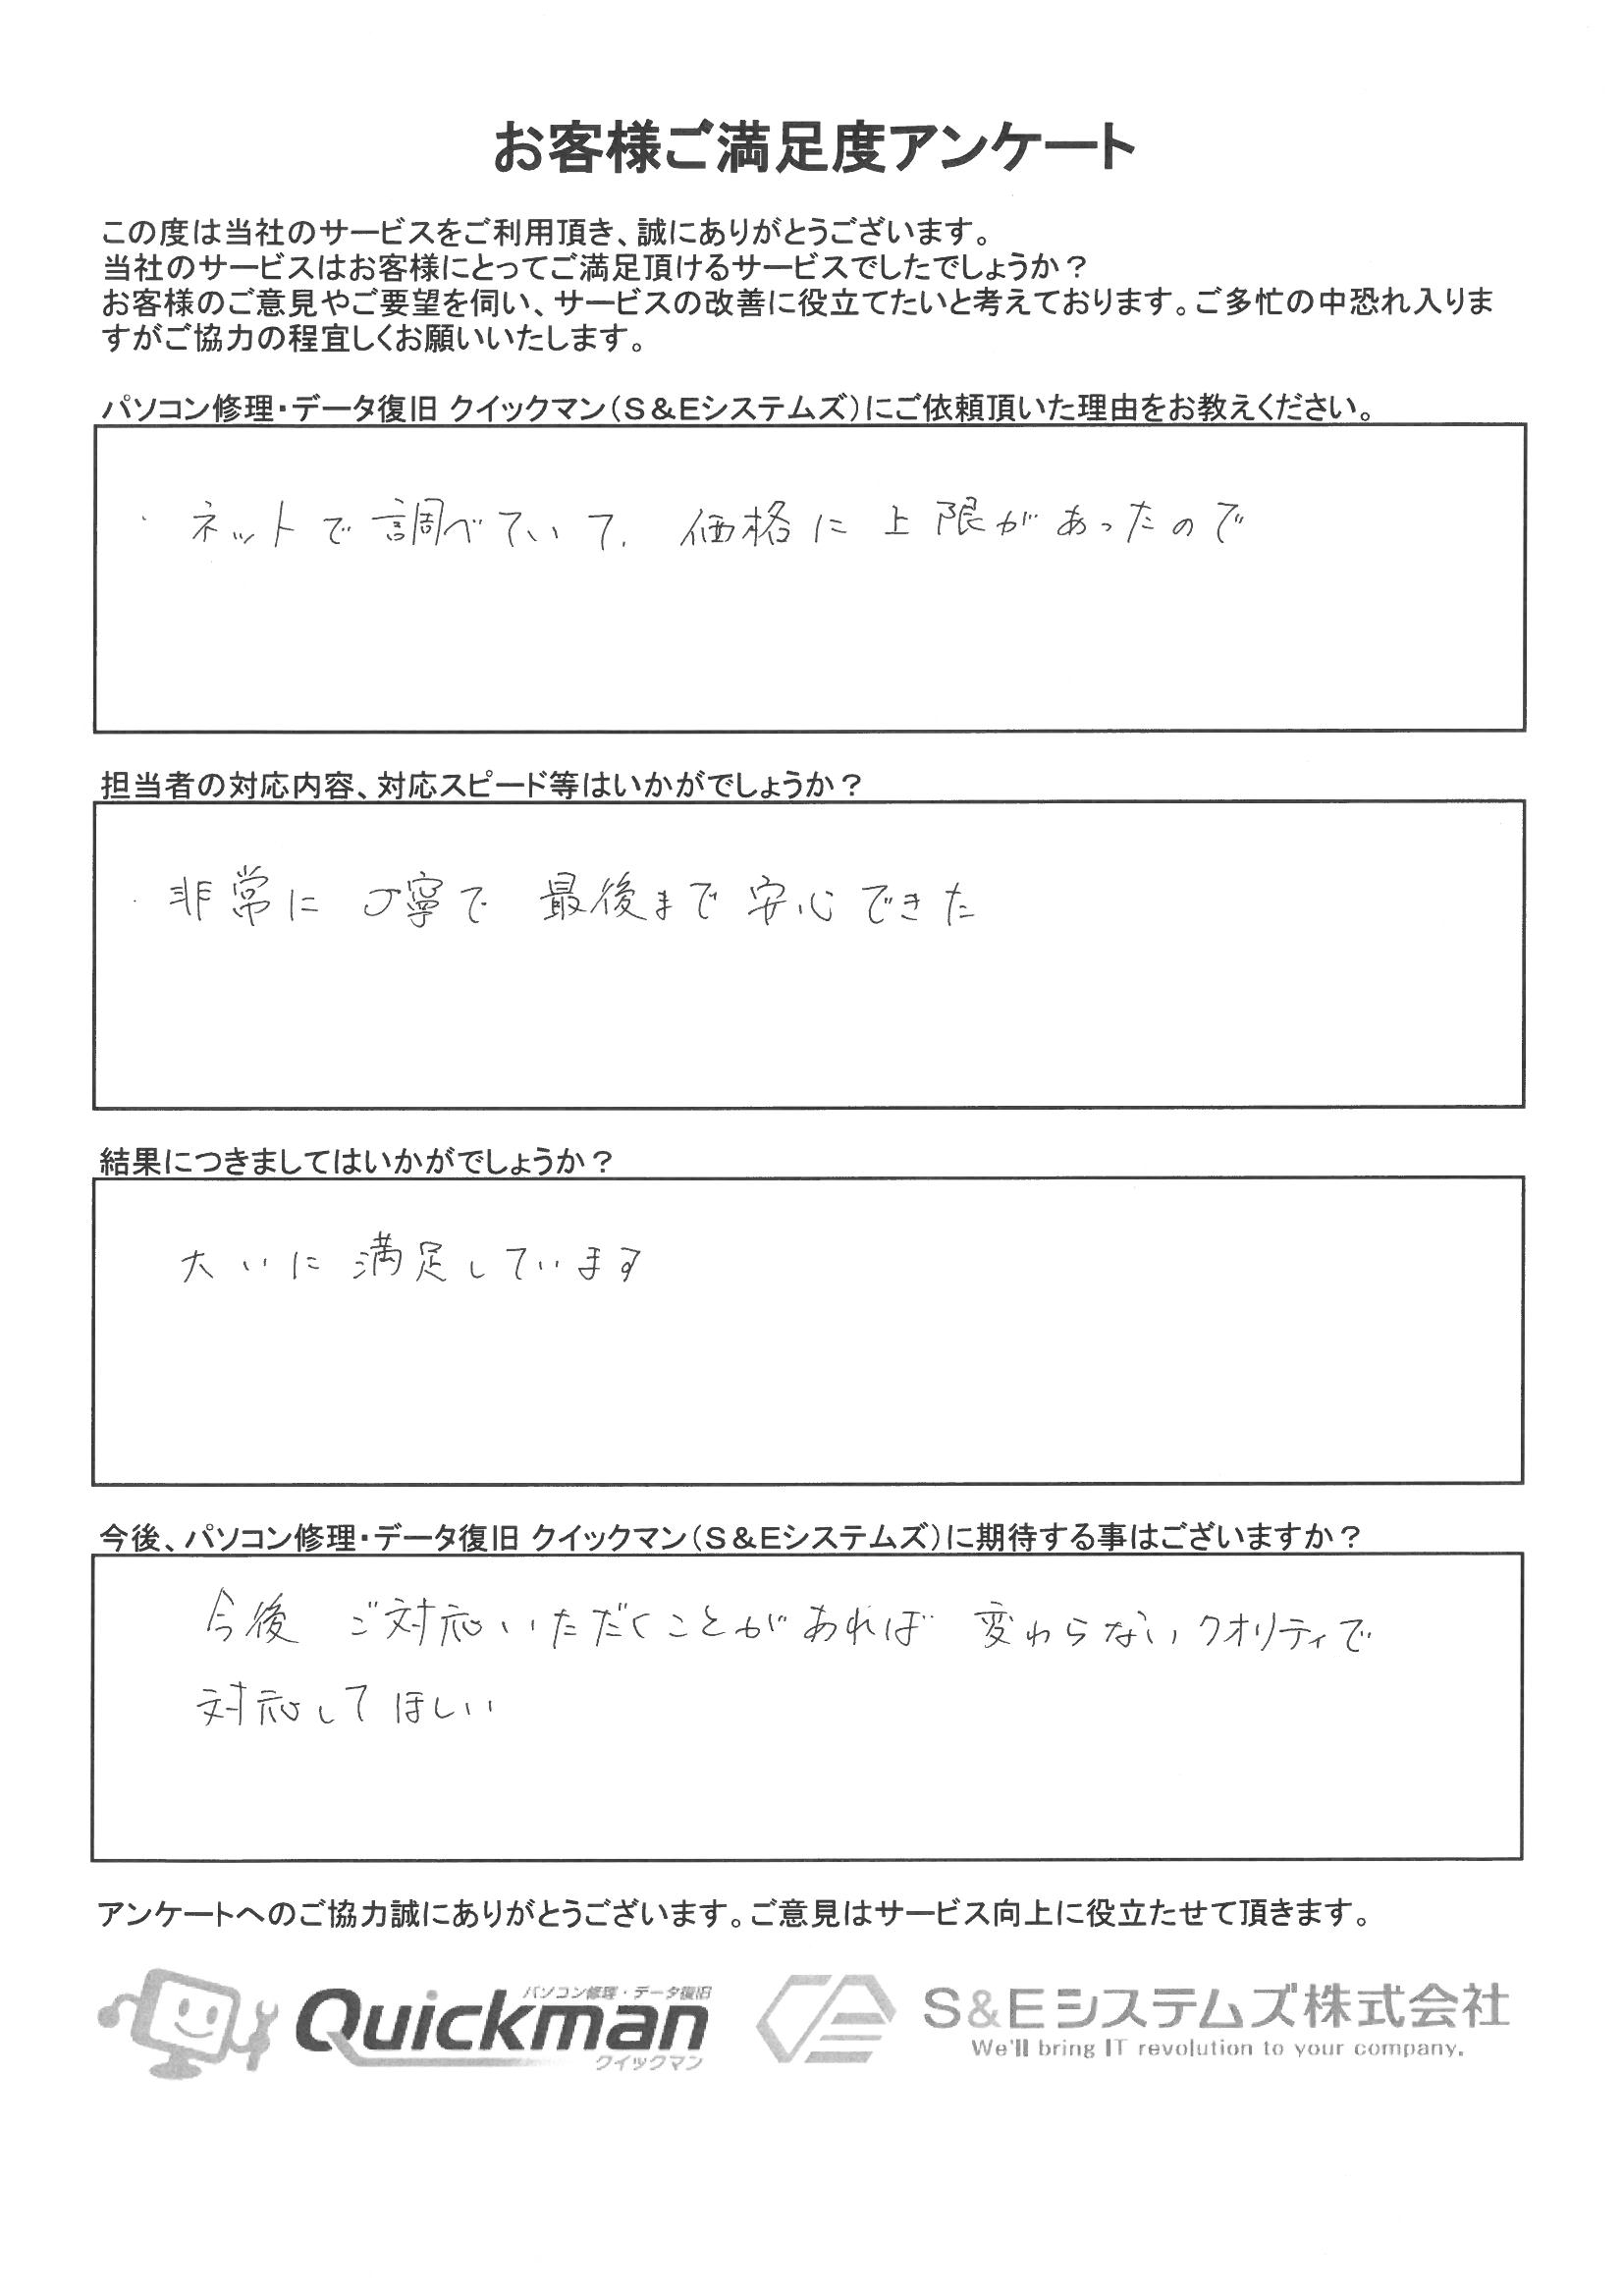 お客様ご満足度アンケート
この度は当社のサービスをご利用頂き、誠にありがとうございます。
当社のサービスはお客様にとってご満足頂けるサービスでしたでしょうか？
お客様のご意見やご要望を伺い、サービスの改善に役立てたいと考えております。ご多忙の中恐れ入りま
すがご協力の程宜しくお願いいたします。
パソコン修理・データ復旧 クイックマン（S＆Eシステムズ）にご依頼頂いた理由をお教えください。
・ネットで調べていて、価格に上限があったので
担当者の対応内容、対応スピード等はいかがでしょうか？
・非常に丁寧で 最後まで安心できた
結果につきましてはいかがでしょうか？
大いに満足しています
今後、パソコン修理・データ復旧 クイックマン（S＆Eシステムズ）に期待する事はございますか？
今後 ご対応いただくことがあれば 変わらないクオリティで
対応してほしい
アンケートへのご協力誠にありがとうございます。ご意見はサービス向上に役立たせて頂きます。
パソコン修理・データ復旧
Quickman
クイックマン
S&Eシステムズ株式会社
We'll bring IT revolution to your company.